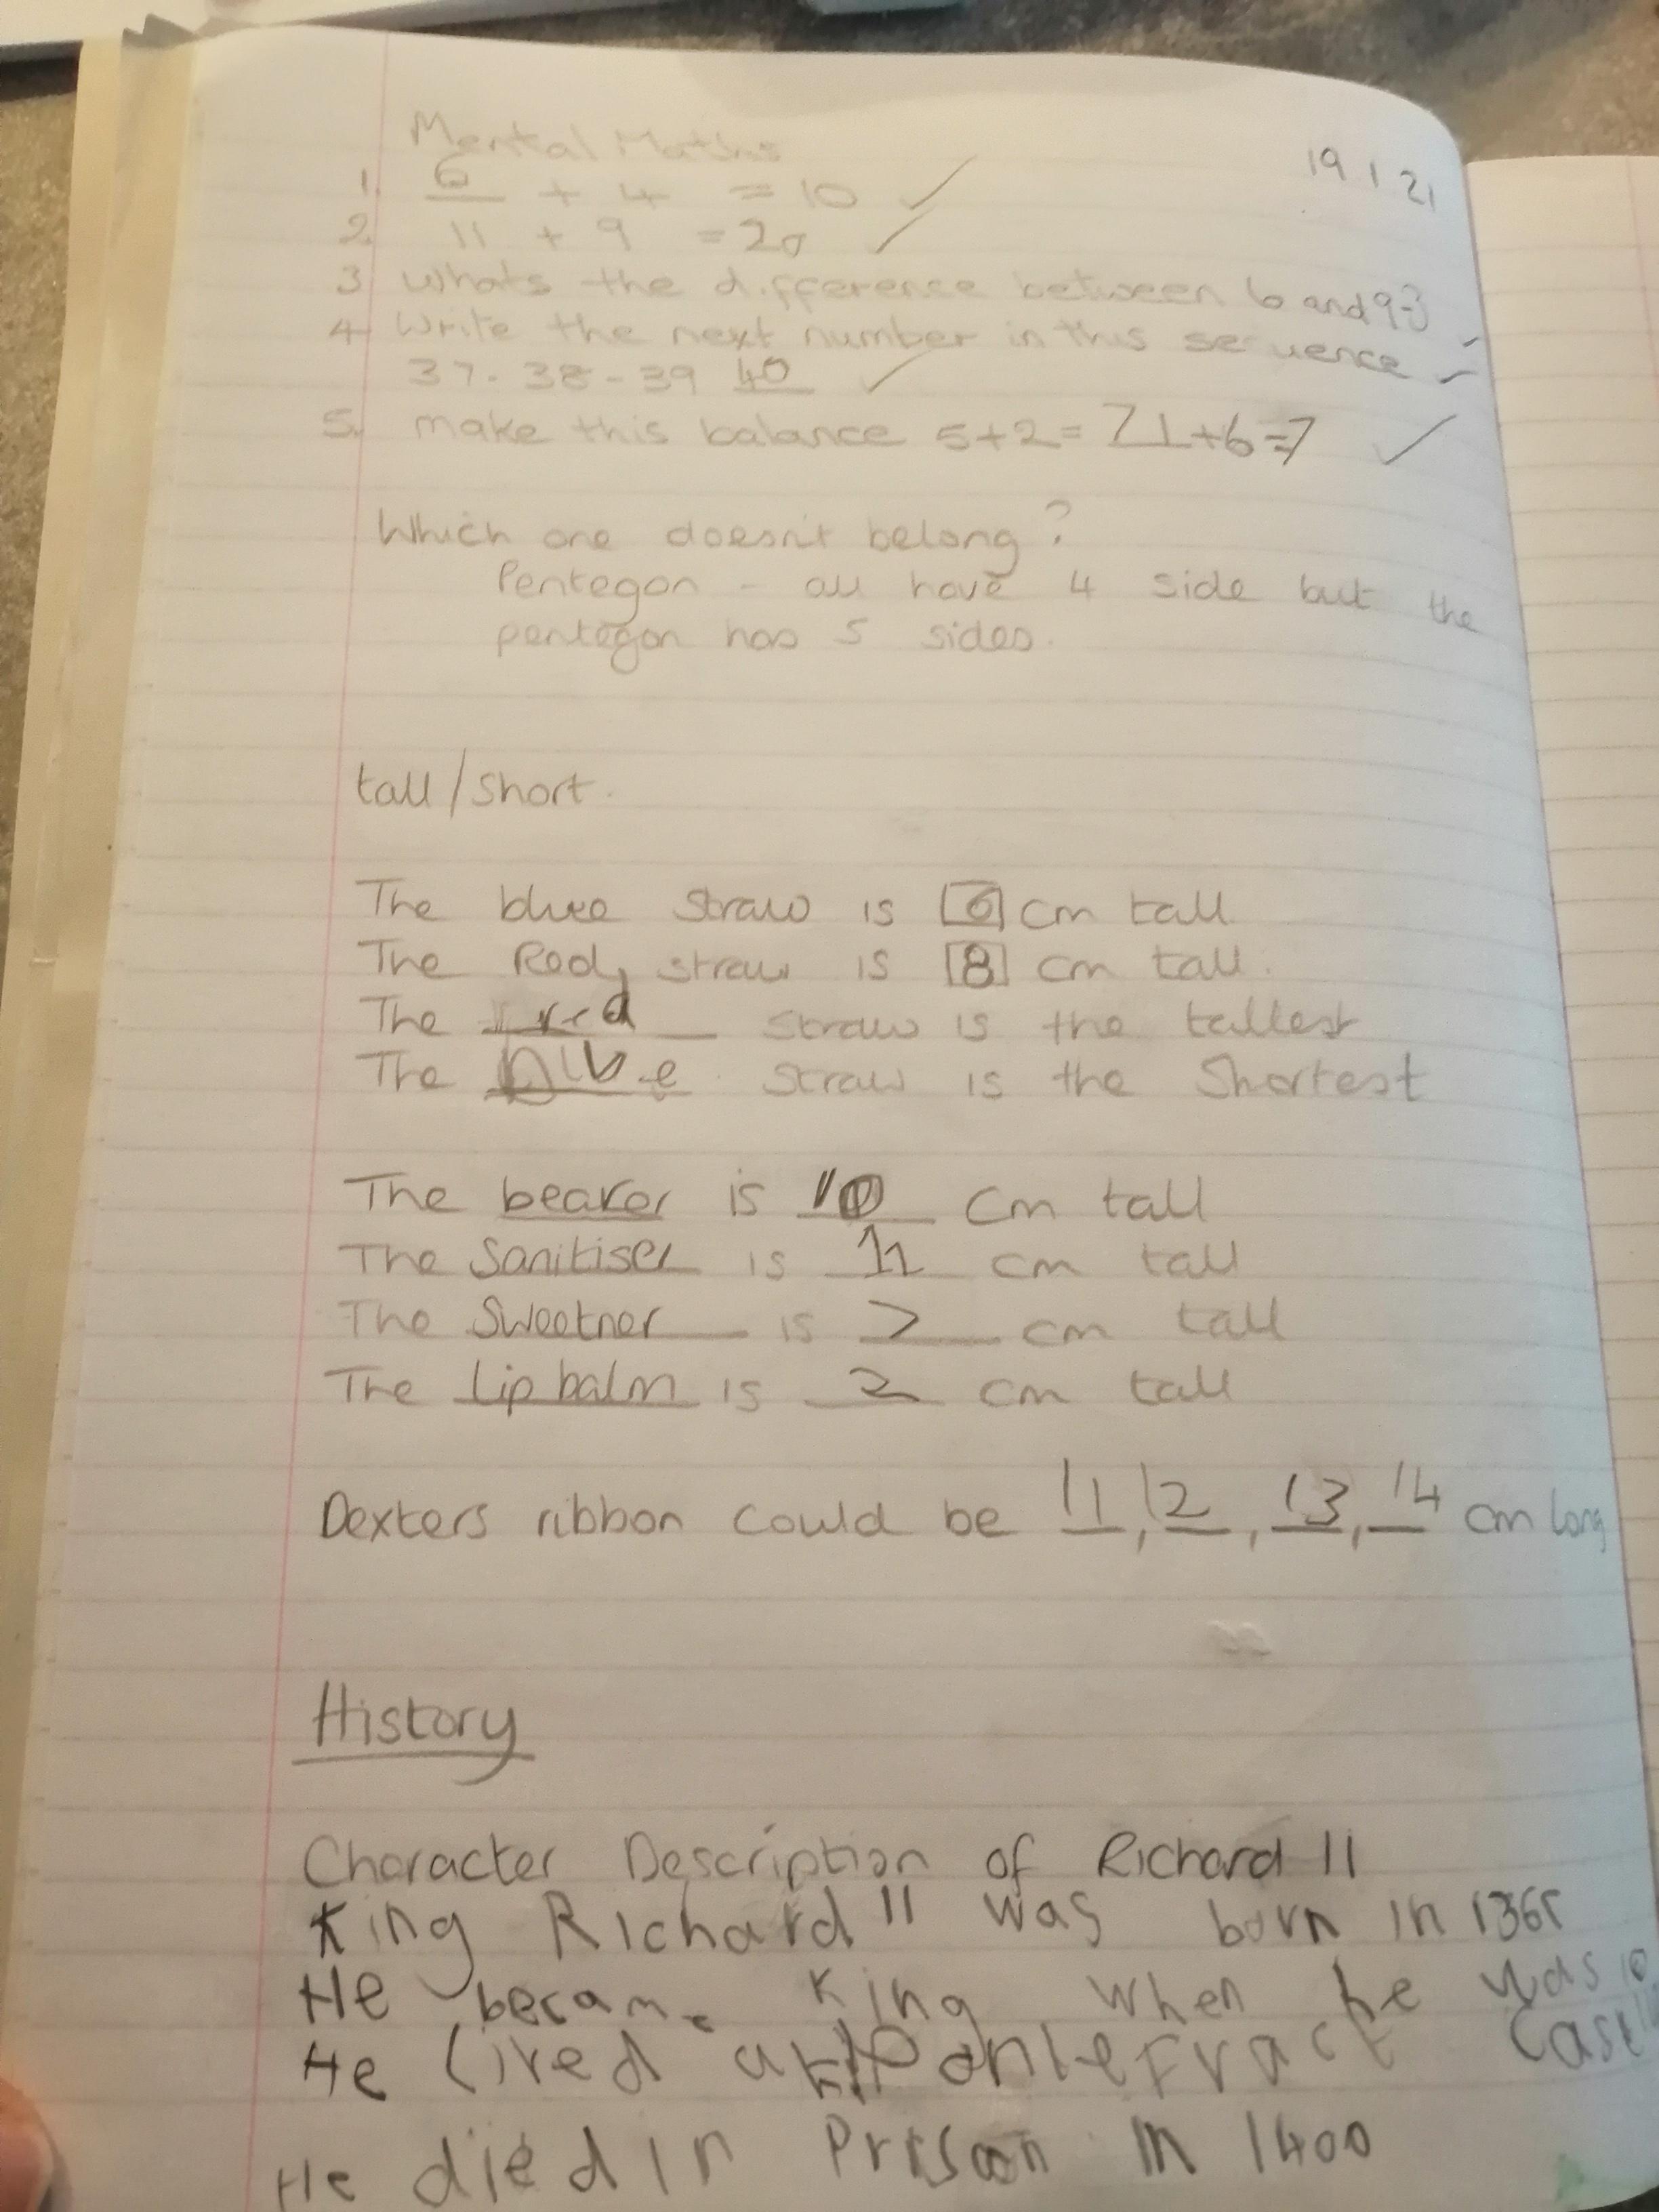 Mental Maths
19 1 21
1. 6 + 4 = 10 ✓
2. 11 + 9 = 20 ✓
3 Whats the difference between 6 and 9 = 3 ✓
4 Write the next number in this sequence ✓
37 - 38 - 39 40 ✓
5. make this balance 5+2= 7 1+6=7 ✓
Which one doesn't belong?
Pentegon - all have 4 side but the
pentegon has 5 sides.
tall/short.
The blue straw is 6 cm tall
The Red straw is 8 cm tall.
The red straw is the tallest
The blue straw is the Shortest
The beaker is 10 cm tall
The Sanitiser is 11 cm tall
The Sweetner is cm tall
The Lip balm is 2 cm tall
Dexters ribbon could be 11, 12, 13, 14 cm long
History
Character Description of Richard II
King Richard II was born in
He became king when he was 10
He lived at Pontefract
He died in Prison in 1400